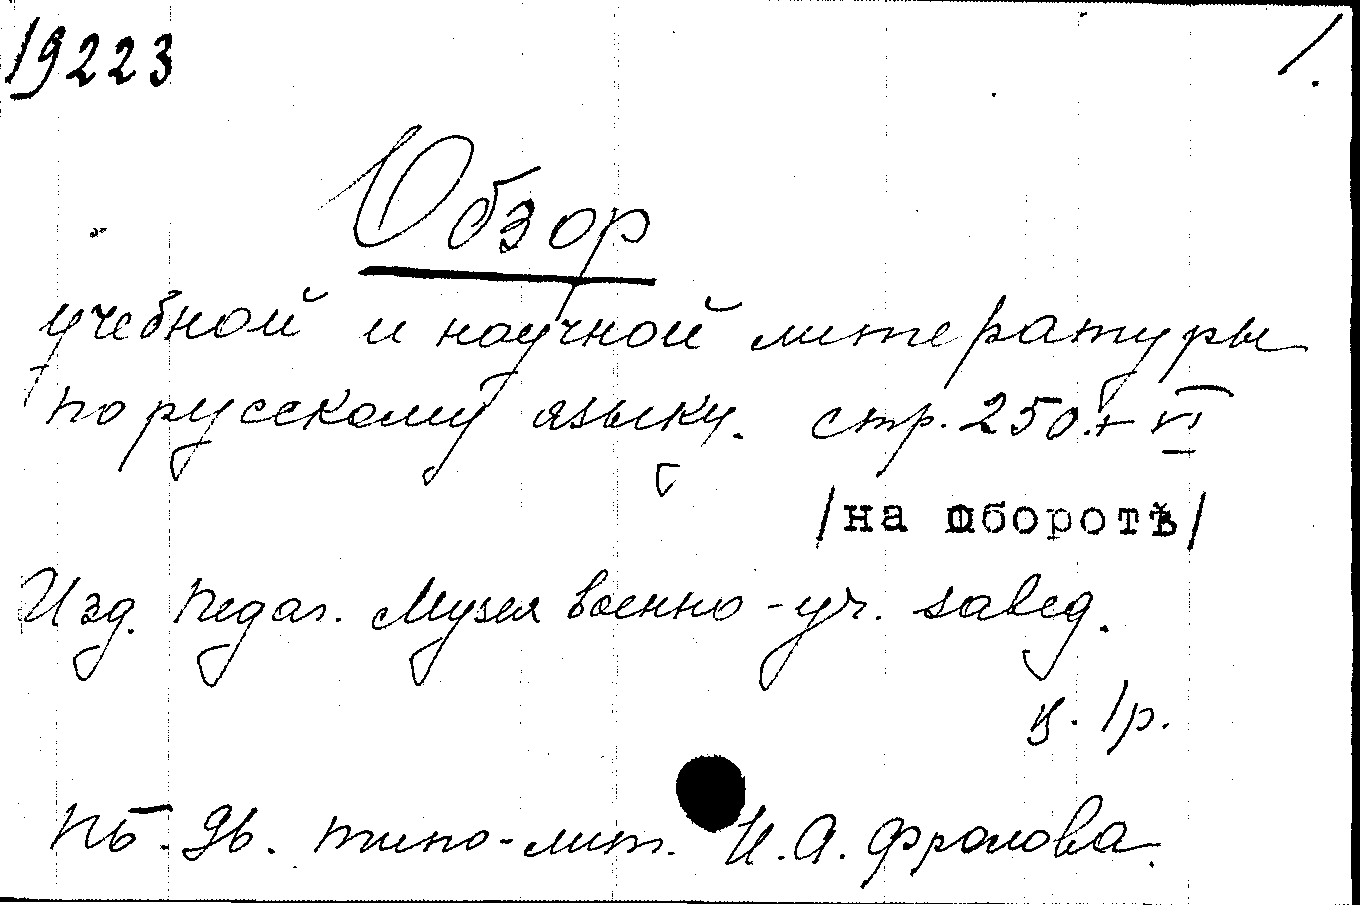 19223 1.
Обзор
учебной и научной литературы
по русскому языку. стр. 250.+VI
/на оборотѣ/
Изд. Педаг. Музея военно-уч. завед.
ц. 1р.
Пб. 96. типо-лит. И.А. Фролова.